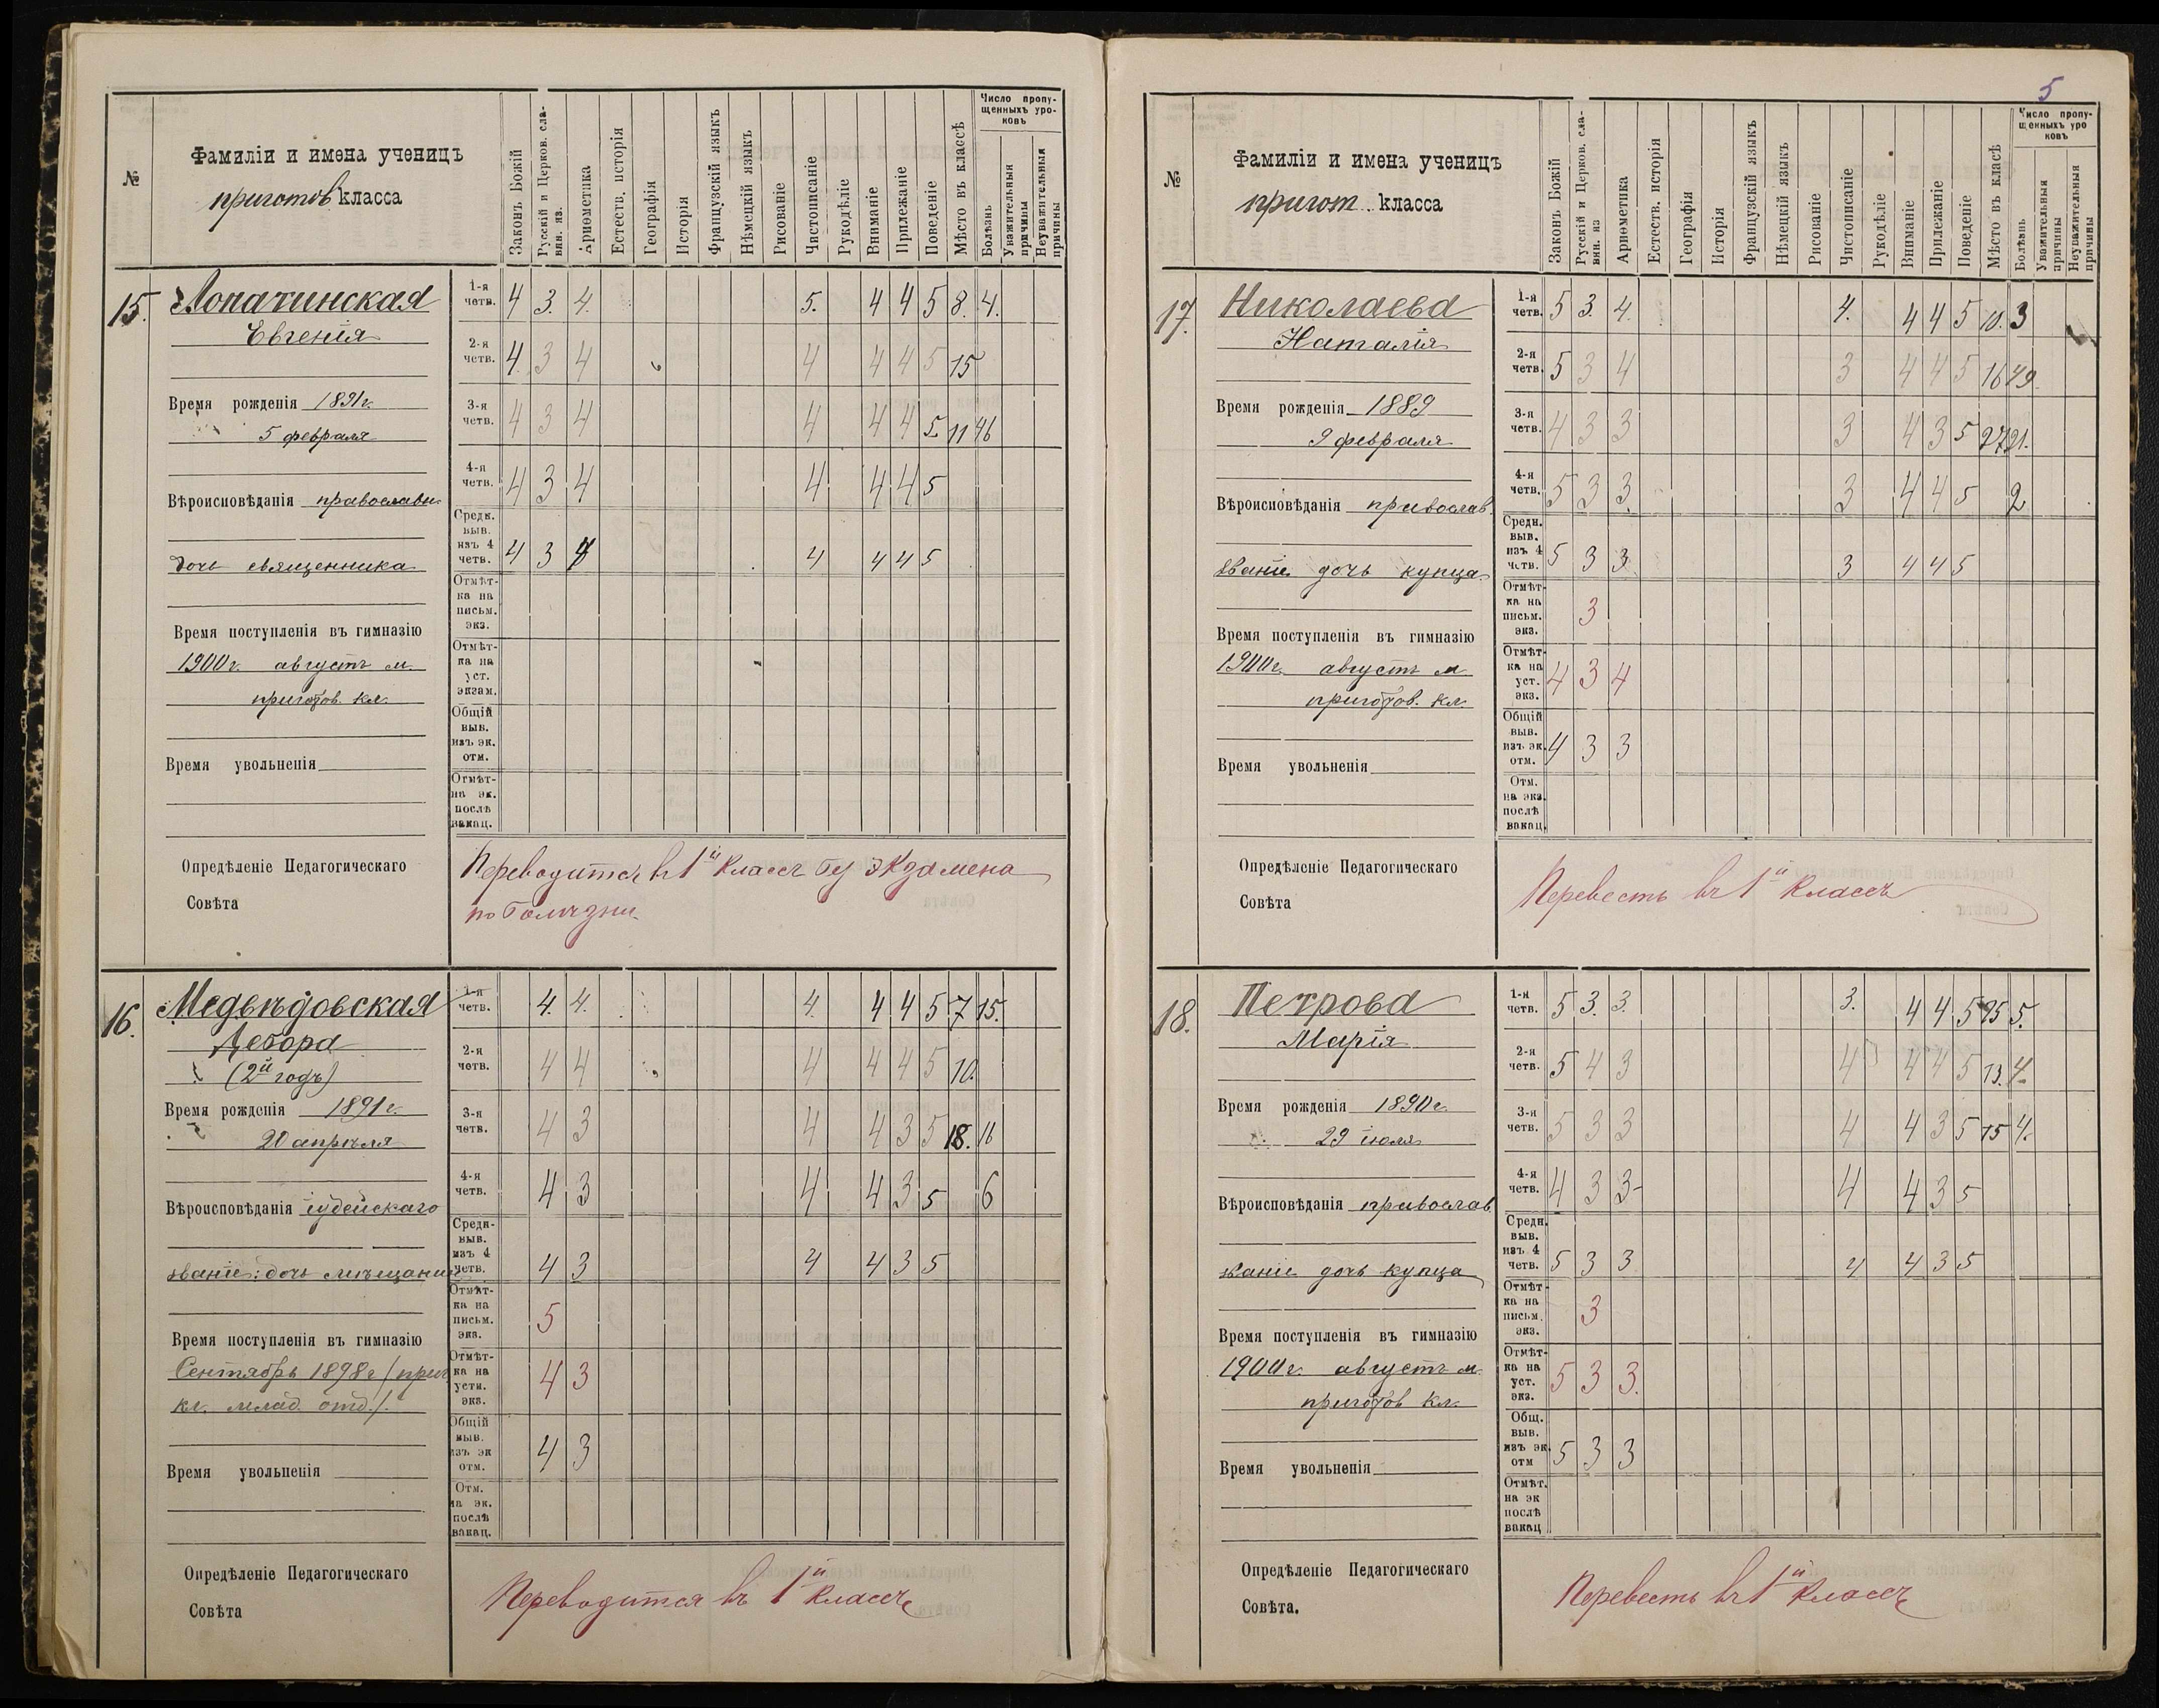 №
Фамиліи и имена ученицъ
приготов. класса
Законъ Божій
Русскій и Церков. сла-
вян. яз.
Ариѳметика
Естеств. исторія
Географія
Исторія
Французскій языкъ
Нѣмецкій языкъ
Рисованіе
Чистописаніе
Рукодѣліе
Вниманіе
Прилежаніе
Поведеніе
Мѣсто въ классѣ
Число пропу-
щенныхъ уро-
ковъ
Болѣзнь
Уважительныя
причины
Неуважительныя
причины
15. Лопатинская
Евгенія
Время рожденія 1891 г.
5 февраля
Вѣроисповѣданія православн.
дочь священника
Время поступленія въ гимназію
1900 г. августъ м.
приготов. кл.
Время увольненія
1-я четв. 4 3. 4. 5. 4 4 5 8. 4.
2-я четв. 4. 3 4 4 4 4 5 15
3-я четв. 4 3 4 4 4 4 5. 11 46
4-я четв. 4 3 4 4 4 4 5
Средн. выв. изъ 4 четв. 4 3 4 4 4 4 5
Отмѣт-ка на письм. экз.
Отмѣт-ка на уст. экзам.
Общій выв. изъ эк. отм.
Отмѣт-на эк. послѣ вакац.
Опредѣленіе Педагогическаго
Совѣта
Переводится въ 1й классъ безъ экзамена
по болѣзни.
16. Медвѣдовская
Дебора
(2й годъ)
Время рожденія 1891 г.
20 апрѣля
Вѣроисповѣданія іудейскаго
званіе: дочь мѣщанина
Время поступленія въ гимназію
Сентябрь 1898 г. (приг.
кл. млад. отд.).
Время увольненія
1-я четв. 4. 4. 4. 4 4 5 7 15.
2-я четв. 4 4 4 4 4 5 10.
3-я четв. 4 3 4 4 3 5 18. 16
4-я четв. 4 3 4 4 3 5 6
Средн. выв. изъ 4 четв. 4 3 4 4 3 5
Отмѣт-ка на письм. экз. 5
Отмѣт-ка на устн. экз. 4 3
Общій выв. изъ эк отм. 4 3
Отм. на эк. послѣ вакац.
Опредѣленіе Педагогическаго
Совѣта
Переводится въ 1й классъ
5
№
Фамиліи и имена ученицъ
пригот. класса
Законъ Божій
Русскій и Церков. сла-
вян. яз
Ариѳметика
Естеств. исторія
Географія
Исторія
Французскій языкъ
Нѣмецкій языкъ
Рисованіе
Чистописаніе
Рукодѣліе
Вниманіе
Прилежаніе
Поведеніе
Мѣсто въ класѣ
Число пропу-
щенныхъ уро
ковъ
Болѣзнь
Уважительныя
причины
Неуважительныя
причины
17. Николаева
Наталія
Время рожденія 1889
9 февраля
Вѣроисповѣданія православ.
званіе дочь купца
Время поступленія въ гимназію
1900 г. августъ м
приготов. кл.
Время увольненія
1-я четв. 5 3. 4. 4. 4 4 5 10. 3
2-я четв. 5 3 4 3 4 4 5 16 49.
3-я четв. 4 3 3 3 4 3 5 27 21.
4-я четв. 5 3 3. 3 4 4 5 2
Средн. выв. изъ 4 четв. 5 3 3. 3 4 4 5
Отмѣт-ка на письм. экз. 3
Отмѣт-ка на уст. экз. 4 3 4
Общій выв. изъ эк. отм. 4 3 3
Отм. на экз. послѣ вакац.
Опредѣленіе Педагогическаго
Совѣта
Перевесть въ 1й классъ
18. Петрова
Марія
Время рожденія 1890 г.
29 іюля
Вѣроисповѣданія православ.
званіе дочь купца
Время поступленія въ гимназію
1900 г. августъ м.
приготов кл.
Время увольненія
1-я четв. 5 3. 3. 3. 4 4 5 5.
2-я четв. 5 4 3 4 4 4 5 13. 4.
3-я четв. 5 3 3 4 4 3 5 15 4.
4-я четв. 4 3 3- 4 4 3 5
Средн. выв. изъ 4 четв. 5 3 3 4 4 3 5
Отмѣт-ка на письм. экз. 3
Отмѣт-ка на уст. экз. 5 3 3.
Общ. выв. изъ эк. отм 5 3 3
Отмѣт. на эк послѣ вакац
Опредѣленіе Педагогическаго
Совѣта.
Перевесть въ 1й классъ